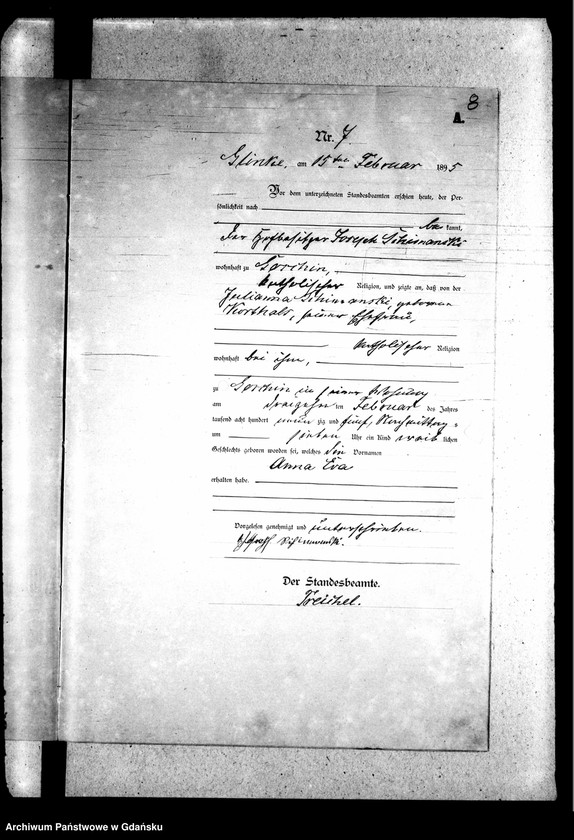 8
A.
Nr. 7
Glinke, am 15ten Februar 1895
Vor dem unterzeichneten Standesbeamten erschien heute, der Per-
sönlichkeit nach
be kannt,
der Hofbesitzer Joseph Schimanski
wohnhaft zu Gorchin,
katholischer Religion, und zeigte an, daß von der
Julianna Schimanski, geborenen
Korthals, seiner Ehefrau,
katholischer Religion
wohnhaft bei ihm,
zu Gorchin in seiner Wohnung
am dreizehn ten Februar des Jahres
tausend acht hundert neun zig und fünf, Nachmittag s
um sieben Uhr ein Kind weib lichen
Geschlechts geboren worden sei, welches die Vornamen
Anna Eva
erhalten habe.
Vorgelesen genehmigt und unterschrieben.
Der Standesbeamte.
Treichel.
Archiwum Państwowe w Gdańsku